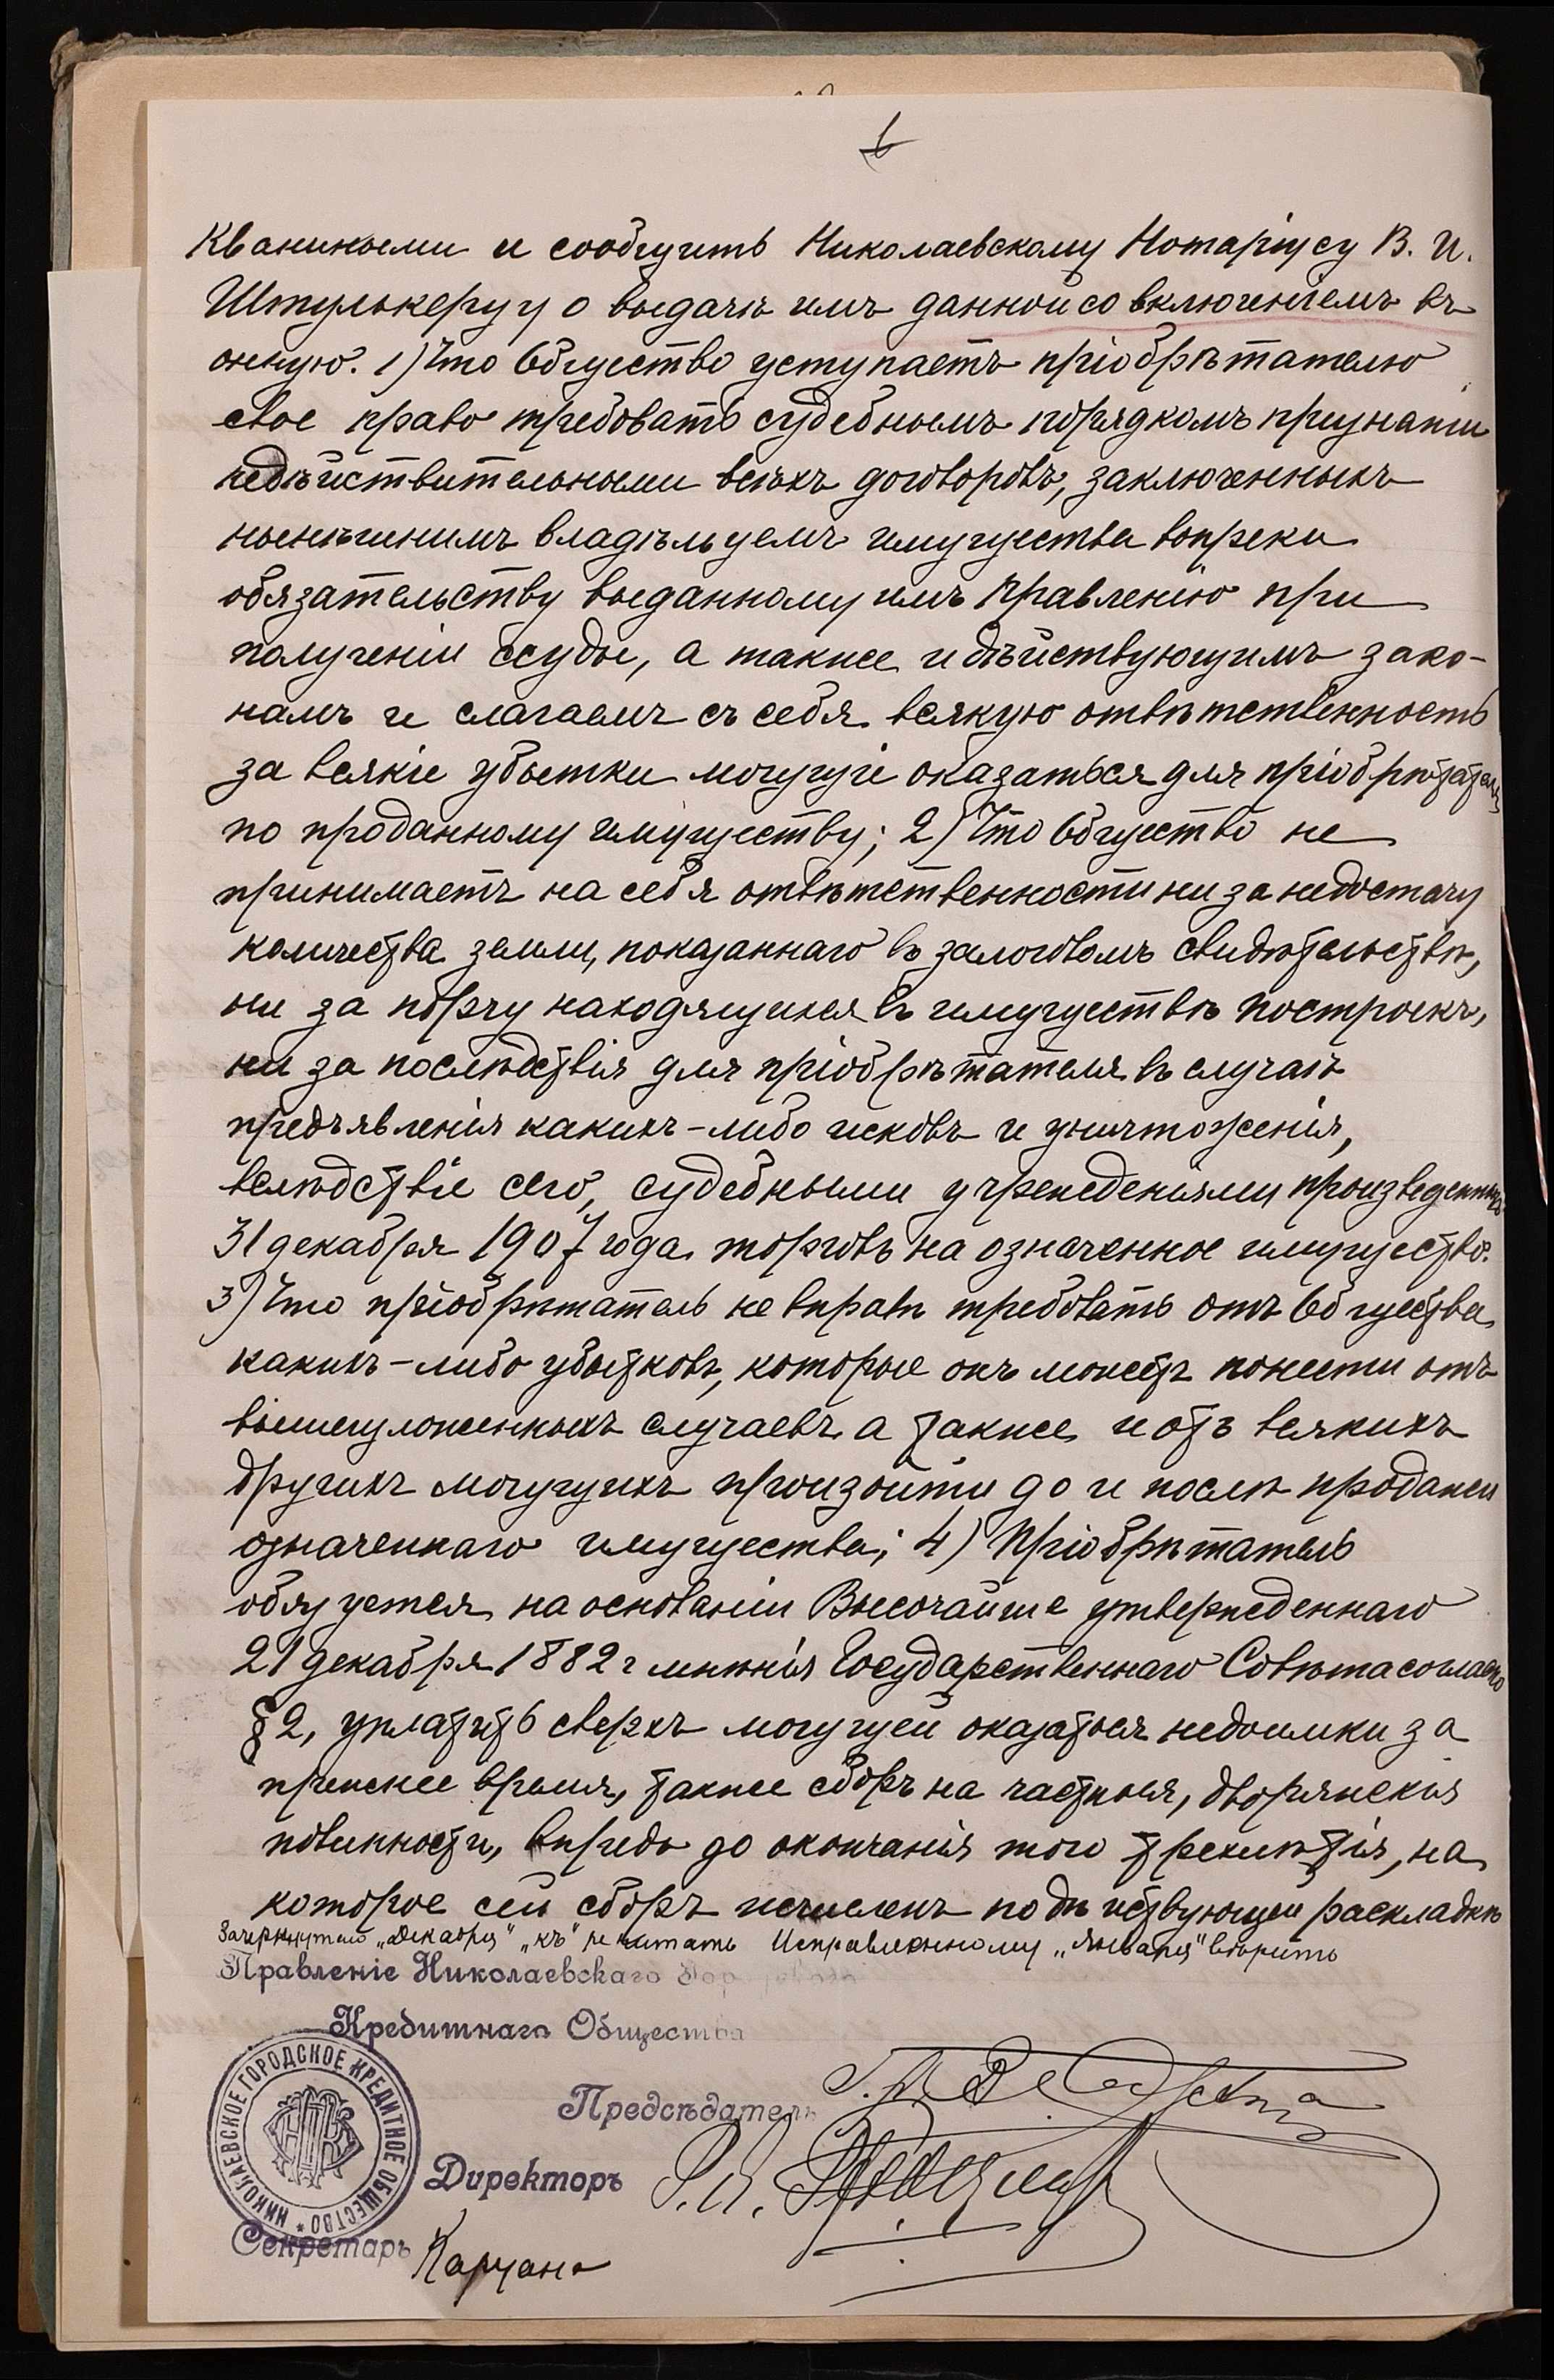 Кваниными и сообщить Николаевскому Нотаріусу В. И.
Штулькерцу о выдачѣ имъ данной со включеніемъ въ
оную. 1) Что Общество уступаетъ пріобрѣтателю
свое право требовать судебнымъ порядкомъ признанія
недѣйствительными всѣхъ договоровъ, заключенныхъ
нынѣшнимъ владѣльцемъ имущества вопреки
обязательству выданному имъ Правленію при
полученіи ссуды, а также и дѣйствующимъ зако-
намъ и слагаетъ съ себя всякую отвѣтственность
за всякіе убытки могущіе оказаться для пріобрѣтателя
по проданному имуществу; 2) Что Общество не
принимаетъ на себя отвѣтственности ни за недостачу
количества земли, показаннаго въ залоговомъ свидѣтельствѣ,
ни за порчу находящихся въ имуществѣ построекъ,
ни за послѣдствія для пріобрѣтателя въ случаѣ
предъявленія какихъ-либо исковъ и уничтоженія,
вслѣдствіе сего, судебными учрежденіями произведенныхъ
31 декабря 1907 года торговъ на означенное имущество.
3) Что пріобрѣтатель не вправѣ требовать отъ Общества
какихъ-либо убытковъ, которые онъ можетъ понести отъ
вышеизложенныхъ случаевъ а также и отъ всякихъ
другихъ могущихъ произойти до и послѣ продажи
означеннаго имущества; 4) Пріобрѣтатель
обязуется на основаніи Высочайше утвержденнаго
21 декабря 1882 г мнѣнія Государственнаго Совѣта согласно
§ 2, уплатить сверхъ могущей оказаться недоимки за
прежнее время, также сборъ на частныя, дворянскія
повинности, впредь до окончанія того трехлѣтія, на
которое сей сборъ исчисленъ по дѣйствующей раскладкѣ
Зачеркнутаго „Декабря" „къ" не читать Исправленному „Января" вѣрить
Правленіе Николаевскаго Городскаго
Кредитнаго Общества
Предсѣдатель
НИКОЛАЕВСКОЕ ГОРОДСКОЕ КРЕДИТНОЕ ОБЩЕСТВО
Директоръ
Секретарь